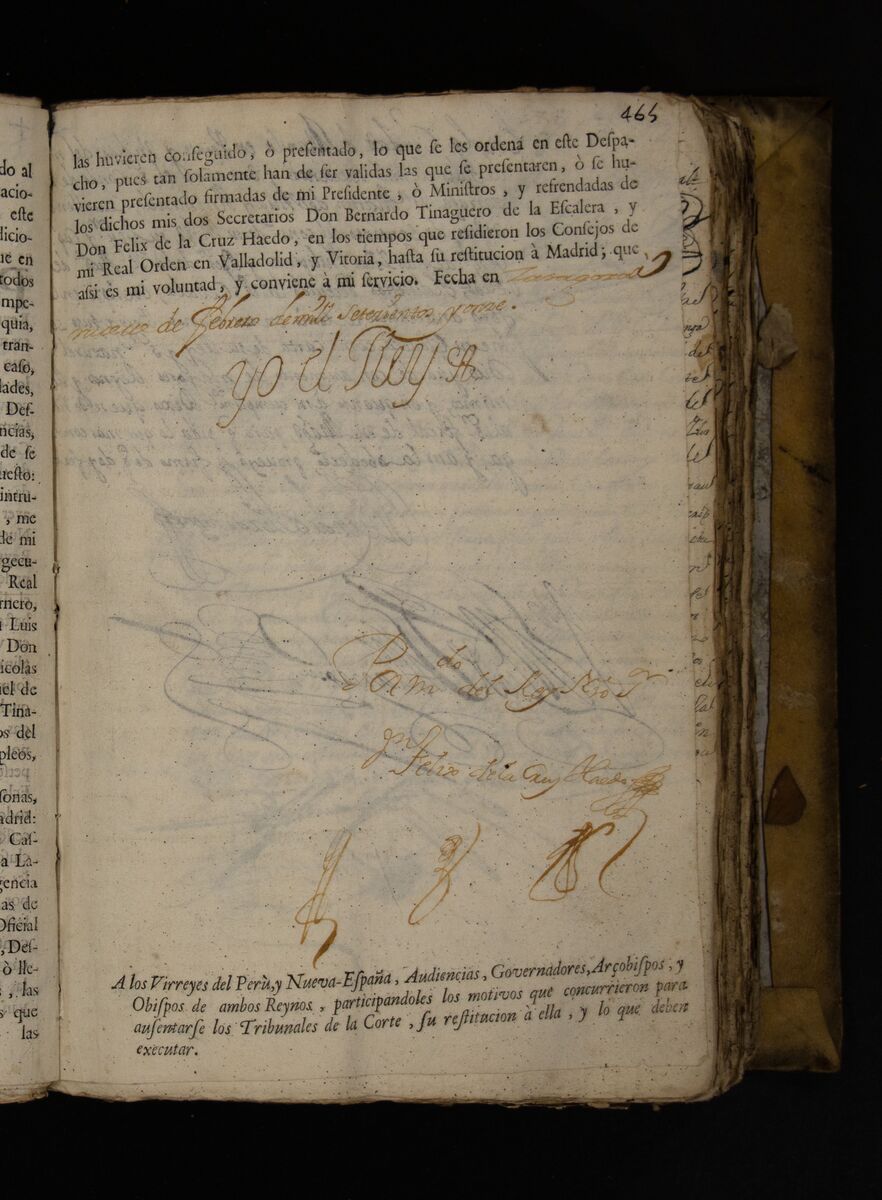 465
las huvieren conſeguido, ò preſentado, lo que ſe les ordena en eſte Deſpa-
cho, pues tan ſolamente han de ſer validas las que ſe preſentaren, ò ſe hu-
vieren preſentado firmadas de mi Preſidente, ò Miniſtros, y refrendadas de
los dichos mis dos Secretarios Don Bernardo Tinaguero de la Eſcalera, y
Don Felix de la Cruz Haedo, en los tiempos que reſidieron los Conſejos de
mi Real Orden en Valladolid, y Vitoria, haſta ſu reſtitucion à Madrid; que
aſsi es mi voluntad, y conviene à mi ſervicio. Fecha en Zaragoza à
nueve de Febrero de mill setecientos y onze.
yo el Rey
Por mdo del Rey Nro Sr
Dn Felix de la Cruz Haedo
A los Virreyes del Perù, y Nueva-Eſpaña, Audiencias, Governadores, Arçobiſpos, y
Obiſpos de ambos Reynos, participandoles los motivos que concurrieron para
auſentarſe los Tribunales de la Corte, ſu reſtitucion à ella, y lo que deben
executar.
do al
acio-
eſte
licio-
ue en
todos
mpe-
quia,
tran-
caſo,
lades,
Deſ-
ncias,
de ſe
ueſto:
intru-
, me
de mi
gecu-
Real
rnero,
i Luis
Don
icolàs
iel de
Tina-
os del
pleos,
ſonas,
adrid:
Caſ-
a La-
gencia
as de
Oficial
, Deſ-
ò lle-
s, las
s que
las